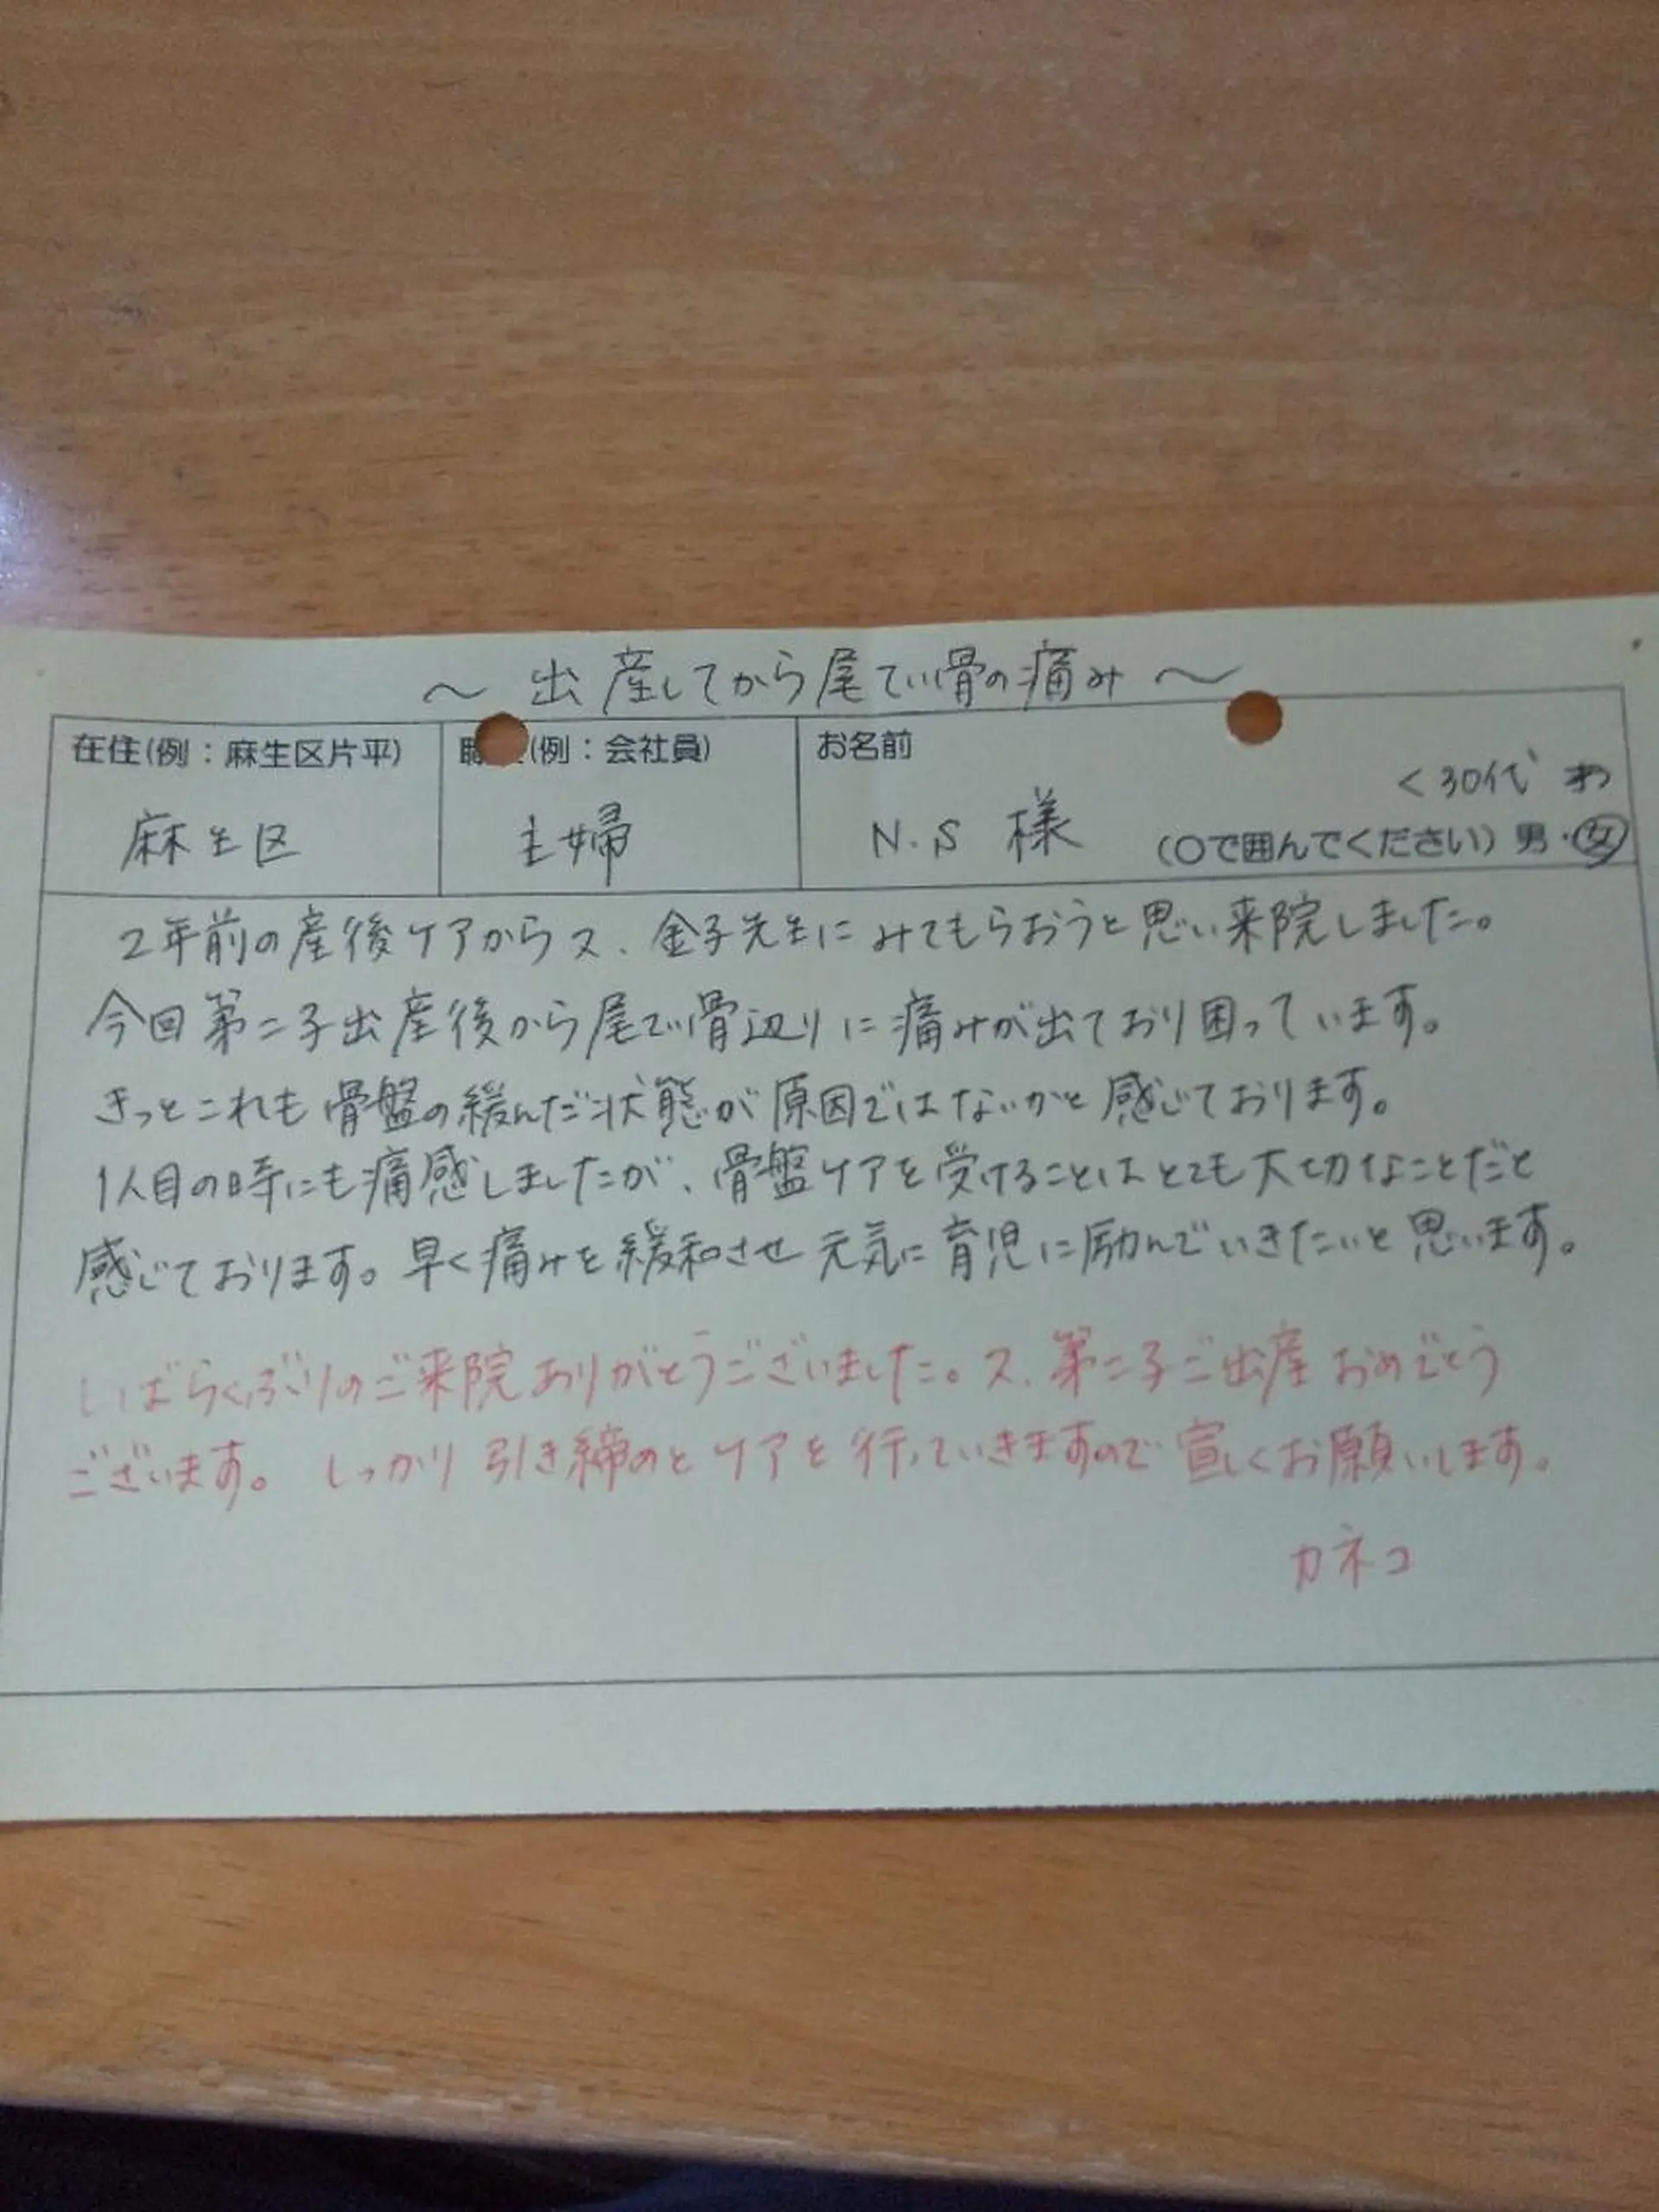 ～ 出産してから尾てい骨の痛み ～
在住(例：麻生区片平) (例：会社員) お名前
<30代
麻生区 主婦 N.S 様 (○で囲んでください) 男・女
2年前の産後ケアから又、金子先生にみてもらおうと思い来院しました。
今回第二子出産後から尾てい骨辺りに痛みが出ており困っています。
きっとこれも骨盤の緩んだ状態が原因ではないかと感じております。
1人目の時にも痛感しましたが、骨盤ケアを受けることはとても大切なことだと
感じております。早く痛みを緩和させ元気に育児に励んでいきたいと思います。
しばらくぶりのご来院ありがとうございました。又、第二子ご出産おめでとう
ございます。しっかり引き締めとケアを行っていきますので宜しくお願いします。
カネコ